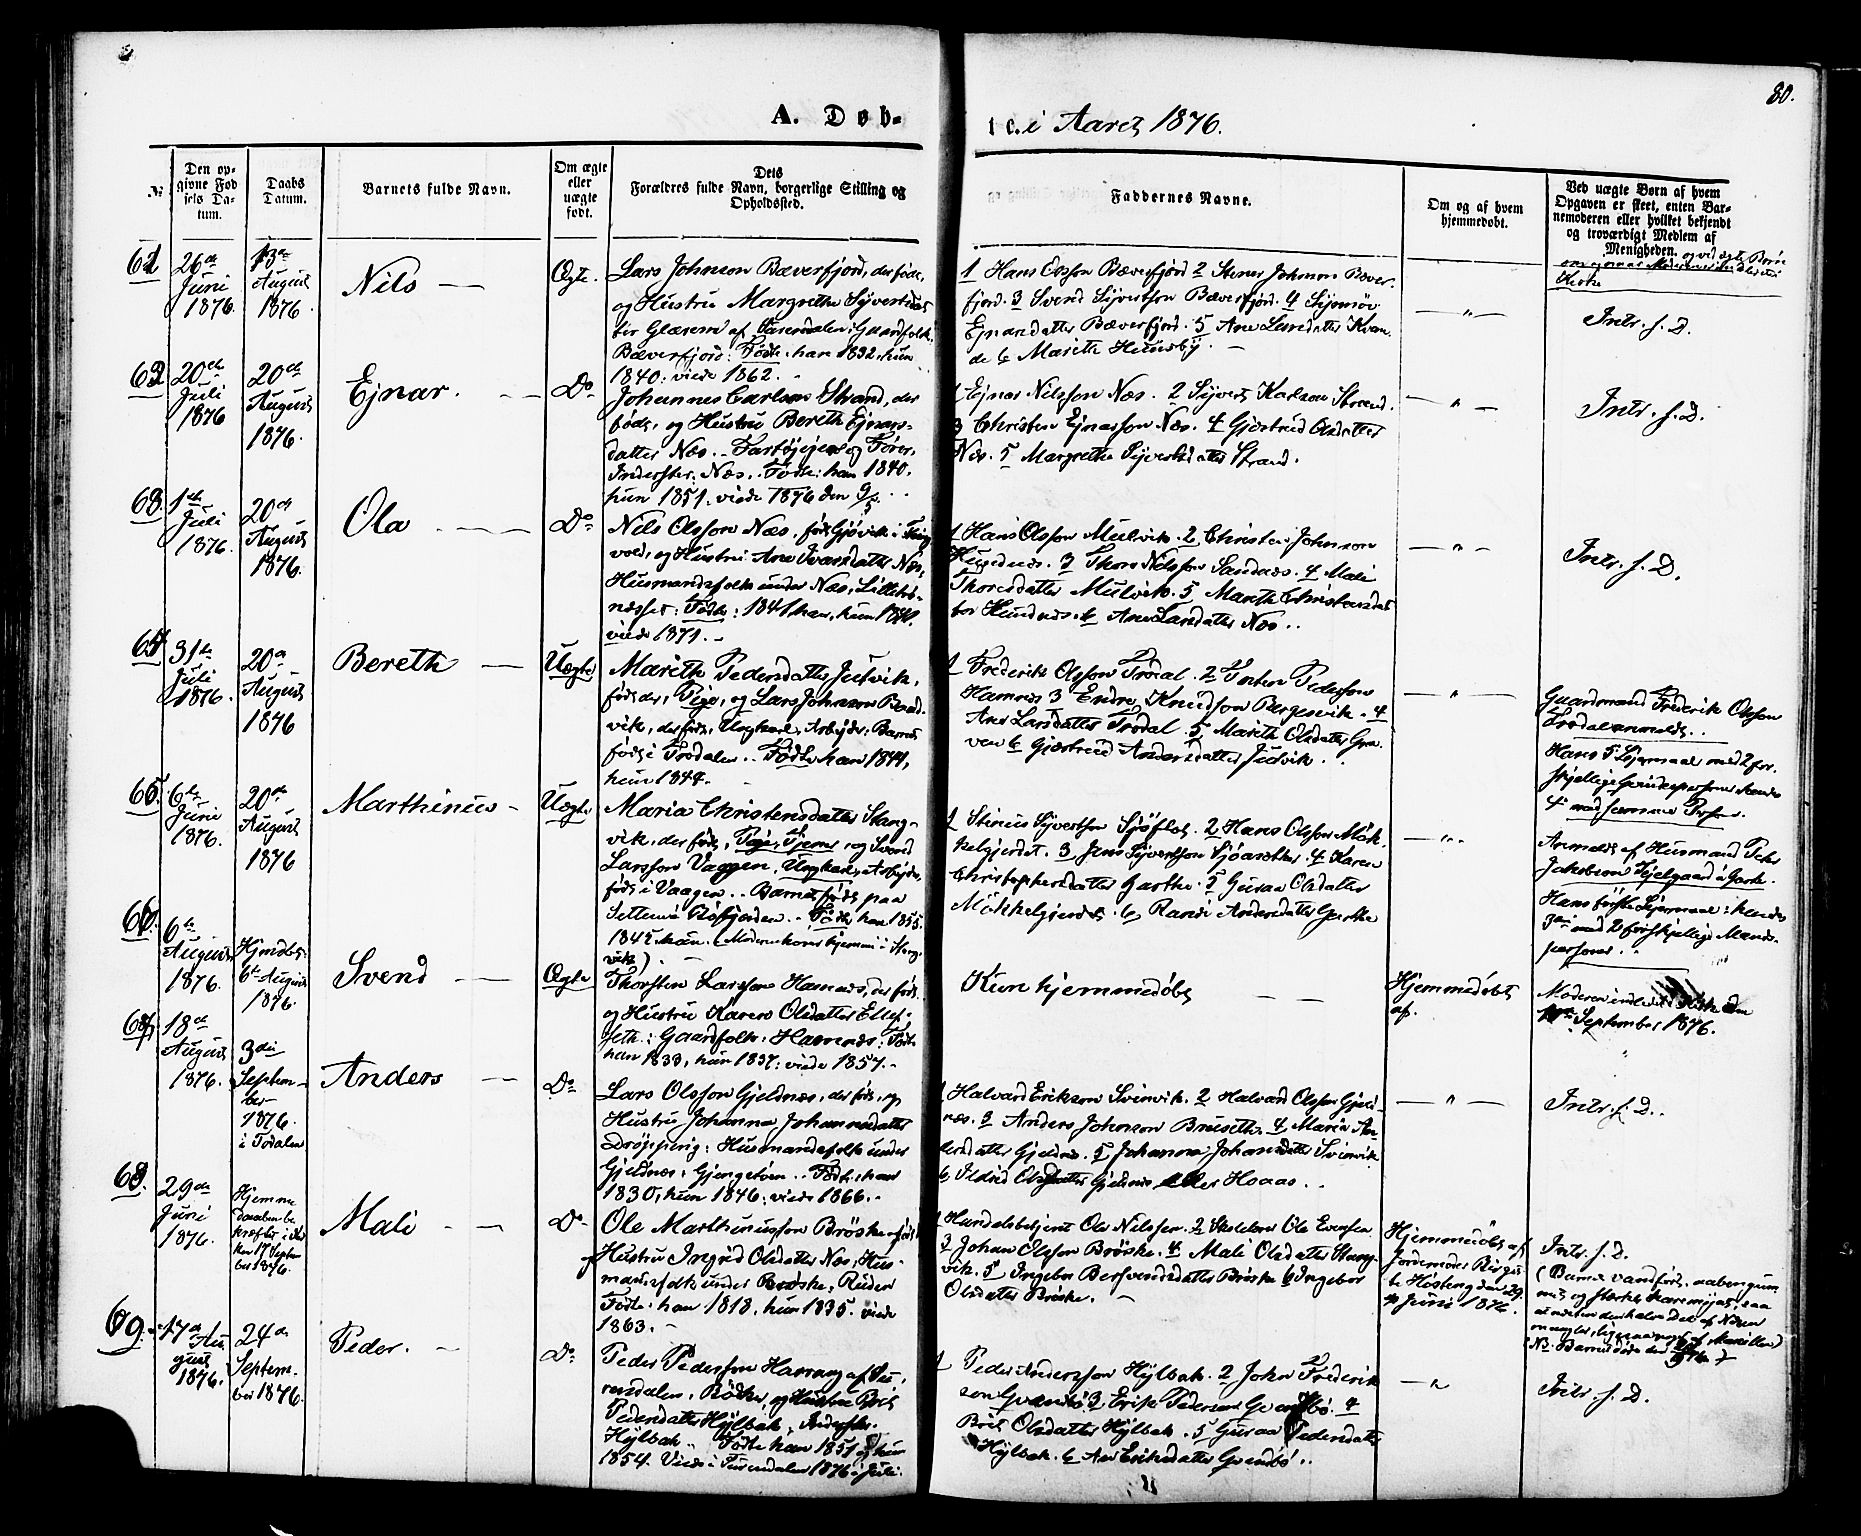 80.
A. Døb-
te. i Aaret 1876.
No.
Den op-
givne Fød
sels Da-
tum.
Daabs
Datum.
Barnets fulde Navn.
Om ægte
eller
uægte
født.
Dets
Forældres fulde Navn, borgerlige Stilling og
Opholdssted.
Faddernes Navne.
Om og af hvem
hjemmedøbt.
Ved uægte Børn af hvem
Opgaven er skeet, enten Bar-
nemoderen eller hvilket bekjendt
og troværdigt Medlem af
Menigheden. og ved ægte Børn
Kirke
61
26de
Juni
1876.
13de
August
1876.
Nils —
Ægte.
Lars Johnson Bæverfjord, der født,
og Hustru Margrethe Syvertsdat
ter Glærem af Surendalen: Gaardfolk.
Bæverfjord: Fødte: han 1832, hun
1840: viede 1862.
1 Hans Olsson Bæverfjord 2 Stener Johnson Bæver
fjord. 3 Svend Syvertson Bæverfjord. 4 Synnøv
Ejnarsdatter Bæverfjord. 5 Ane Larsdatter Kvan
de 6 Marith Hetusby. —
— " —
Intr. s. D.
62
20de
Juli
1876
20de
August
1876.
Ejnar. —
Do
Johannes Carlson Strand, der
født, og Hustru Bereth Ejnars-
datter Næs. Fartøjejer og Fører,
Inderster: Næs. Fødte: han 1840.
hun 1851. viede 1876 den 9/5.
1 Ejnar Nilsson Næs. 2 Syvert Karlson Strand.
3 Christen Ejnarsson Næs. 4 Gjertrud Olsdatter
Næs. 5 Margrethe Syvertsdatter Strand.
— " —
Intr. s. D.
63.
1ste
Juli
1876.
20de
August
1876.
Ola —
Do
Nils Olsson Næs, født Gjøvik i Ting
vold, og Hustru Ane Ivarsdatter Næs,
Husmandsfolk under Næs, Lilleth-
næsset: Fødte: 1841 han, hun 1840.
viede 1871.
1 Hans Olsson Mulvik. 2 Christen Johnson
Hundnæs. 3 Thore Nilsson Sandnæs. 4 Mali
Thoresdatter Mulvik. 5 Marith Christensdat
ter Hundnæs. 6 Ane Larsdatter Næs.
— " —
Intr. s. D.
64
31te
Juli
1876.
20de
August
1876
Bereth —
Uægte
Marith Pedersdatter Jutvik,
født der, Pige, og Lars Johnson Bend
vik, der født, Ungkarl, Arbejder: Barnet
født i Trødalen. Fødte han 1844,
hun 1844.
1 Frederik Olsson Trødal. 2 Peter Pederson
Hamnes 3 Endre Knudson Bergesvik. 4
Ane Larsdatter Trødal. 5 Marith Olsdatter Gra
ven 6 Gjertrud Andersdatter Jutvik.
— " —
Gaardmand Frederik Olsson
Trødal anmeldt.
Hans 5te Lejermaal med 2 for
skjellige Qvindepersoner hendes
4de med samme Person.
65.
6te
Juni
1876.
20de
August
1876
Marthinus —
Uægte
Maria Christensdatter Stang-
vik, der født, Pige, Tjener og Svend
Larsson Vaagen, Ungkarl, Arbejder,
født i Vaagen. Barnet født paa
Settemsfjorden. Fødte: han 1855.
1845 hun. (Moderen havde hjemme i Stang
vik). —
1 Stinus Syvertson Sjøflot. 2 Hans Olsson Møk
kelgjerdet. 3 Jens Syvertson Sjøasæther. 4 Karen
Christophersdatter Garthe. 5 Guraa Olsdatter
Møkkelgjerdet. 6 Randi Andersdatter Garthe
— " —
Anmeldt af Husmand Peter
Jakobson Hjelgaard u. Garthe.
Hans første Lejermaal: hendes
3die med 2 forskjellige Mands-
personer.
66.
6te
August
1876.
Hjemdbt:
6te August
1876.
Svend —
Ægte
Thorsten Larsson Hamnæs, der født.
og Hustru Karen Olsdatter Ellef-
seth: Gaardfolk: Hamnæs: Fødte
han 1833, hun 1837: viede 1857.
Kun hjemmedøbt —
Hjemmedøbt
af.
Moderen indledet i Kirke den
September 1876.
67.
18de
August
1876.
3die
Septem-
ber
1876.
i Todalen
Anders —
Do
Lars Olsson Gjeldnæs, der født, og
Hustru Johanna Johannesdatter
Drøpping: Husmandsfolk under
Gjeldnæs: Gjengstøen. Fødte: han
1830, hun 1846: viede 1866.
1 Halvard Erikson Svinvik. 2 Halvard Olsson Gjeld-
næs. 3 Anders Johnson Bruseth. 4 Maria An-
dersdatter Gjeldnæs. 5 Johanna Johansdatter Svinvik
6 Ildrid Olsdatter Gjeldnæs eller Hoaas.
— " —
Intr. s. D.
68.
29de
Juni
1876.
Hjemme
daaben be
kræftet i Kir
ken 17 Septem
ber 1876.
Mali —
Do
Ole Marthinusson Brøske, født
og Hustru Ingrid Olsdatter Næs, Hus-
mandsfolk under Brøske, Ruden
Fødte: han 1818, hun 1835. viede
1863. —
1 Handelsbetjent Ole Nilssen. 2 Skolelærer Ole Evensen
3 Johan Olsson Brøske. 4 Mali Olsdatter Stang-
vik. 5 Ingebor Bersvendsdatter Brøske 6 Ingebor
Olsdatter Brøske. —
Hjemmedøbt af
Jordemoder Birgit
the Høsteng den 29
Juni 1876.
Intr. s. D.
(Barnet vanfødt, aaben gum
me og stærkt haremyndt, saa
at næsten den halve Del af Næsen
mangler, ligesaa noget af Maxillen)
69.
17de
August
1876.
24de
Septem-
ber 1876
Peder. —
Do
Peder Pederson Harang af Su-
rendalen, Bødker, og Hustru Brit
Pedersdatter Hylbak, Inderster.
Hylbak. Fødte han 1851 og hun
1854. Viede i Surendalen 1876 i Juli.
1 Peder Anderson Hylbak. 2 John Frederik
son Qvendbø 3 Erik Pederson Qvendbø. 4
Brit Olsdatter Hylbak. 5 Guraa Pedersdatter
Hylbak. 6 Ane Eriksdatter Qvendbø.
— "
Intr. s. D.